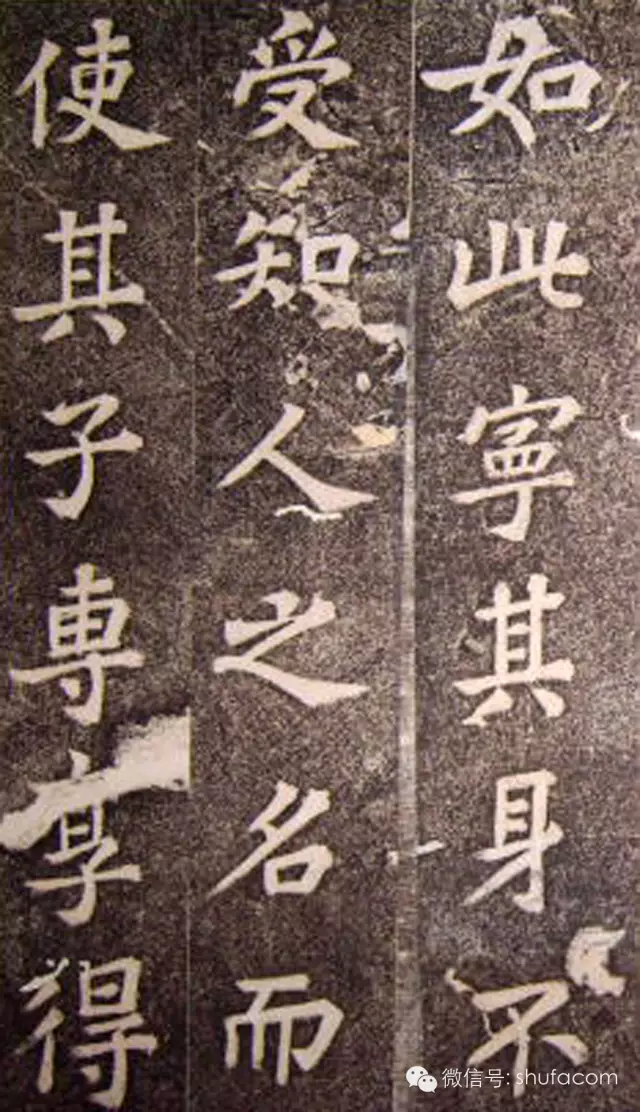 如此寧其身不
受知人之名而
使其子専享得
微信号: shufacom